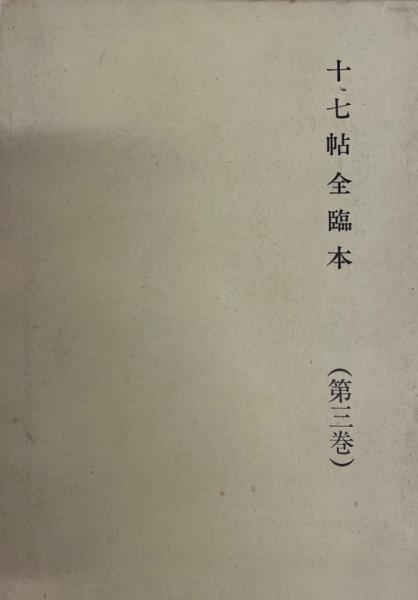 十七帖全臨本
（第三巻）